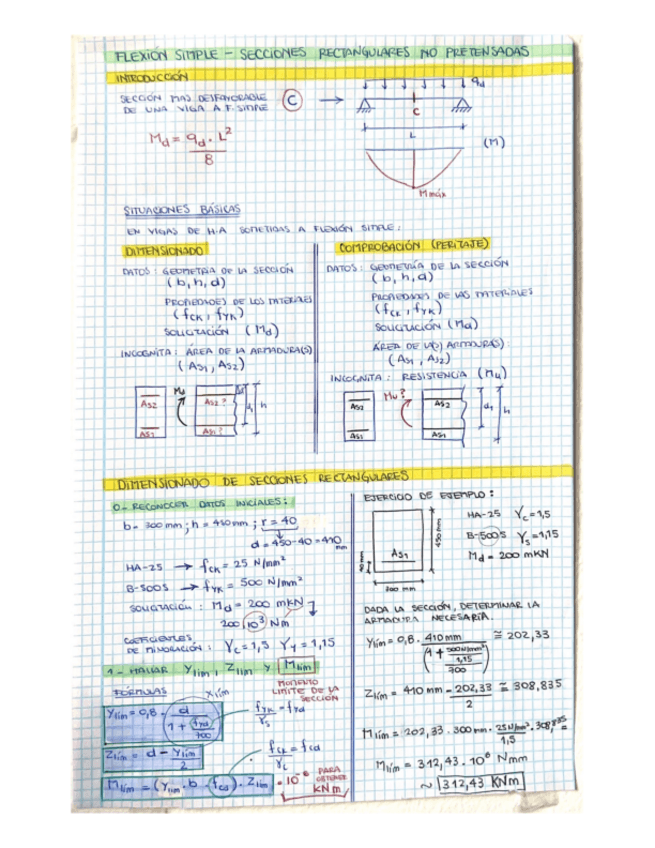 FLEXIÓN SIMPLE - SECCIONES RECTANGULARES NO PRETENSADAS
INTRODUCCIÓN
SECCIÓN MAS DESFAVORABLE
DE UNA VIGA A F. SIMPLE
C
qd
C
L
(M)
M máx
Md = qd · L²
8
SITUACIONES BÁSICAS
EN VIGAS DE H.A SOMETIDAS A FLEXIÓN SIMPLE:
DIMENSIONADO
DATOS: GEOMETRÍA DE LA SECCIÓN
(b, h, d)
PROPIEDADES DE LOS MATERIALES
(fck, fyk)
SOLICITACIÓN (Md)
INCOGNITA: ÁREA DE LA ARMADURA(S)
(As1, As2)
As2
As1
Md
As2?
As1?
d1
h
COMPROBACIÓN (PERITAJE)
DATOS: GEOMETRÍA DE LA SECCIÓN
(b, h, d)
PROPIEDADES DE LOS MATERIALES
(fck, fyk)
SOLICITACIÓN (Md)
ÁREA DE LA(S) ARMADURA(S):
(As1, As2)
INCOGNITA: RESISTENCIA (Mu)
As2
As1
Mu?
As2
As1
d1
h
DIMENSIONADO DE SECCIONES RECTANGULARES
0- RECONOCER DATOS INICIALES:
b - 300 mm; h = 450 mm; r = 40
d = 450-40 = 410 mm
HA-25 → fck = 25 N/mm²
B-500S → fyk = 500 N/mm²
SOLICITACIÓN: Md = 200 mKN
200·10³ Nm
COEFICIENTES
DE MINORACIÓN: Yc = 1,5 Yy = 1,15
1- HALLAR Ylim, Zlim Y Mlim
FÓRMULAS
Xlim
MOMENTO
LIMITE DE LA
SECCIÓN
Ylim = 0,8 · d
1 + fyd
700
fyk = fyd
Ys
Zlim = d - Ylim
2
fck = fcd
Yc
Mlim = (Ylim · b · fcd) · Zlim · 10⁻⁶ PARA OBTENER KNm
EJERCICIO DE EJEMPLO:
As1
450 mm
300 mm
HA-25 Yc = 1,5
B-500S Ys = 1,15
Md = 200 mKN
DADA LA SECCIÓN, DETERMINAR LA
ARMADURA NECESARIA.
Ylim = 0,8 · 410 mm ≅ 202,33
(1 + 500 N/mm²
1,15
700)
Zlim = 410 mm - 202,33 ≅ 308,835
2
Mlim = 202,33 · 300 mm · 25 N/mm² · 308,835 =
1,5
Mlim = 312,43 · 10⁶ Nmm
~ 312,43 KNm